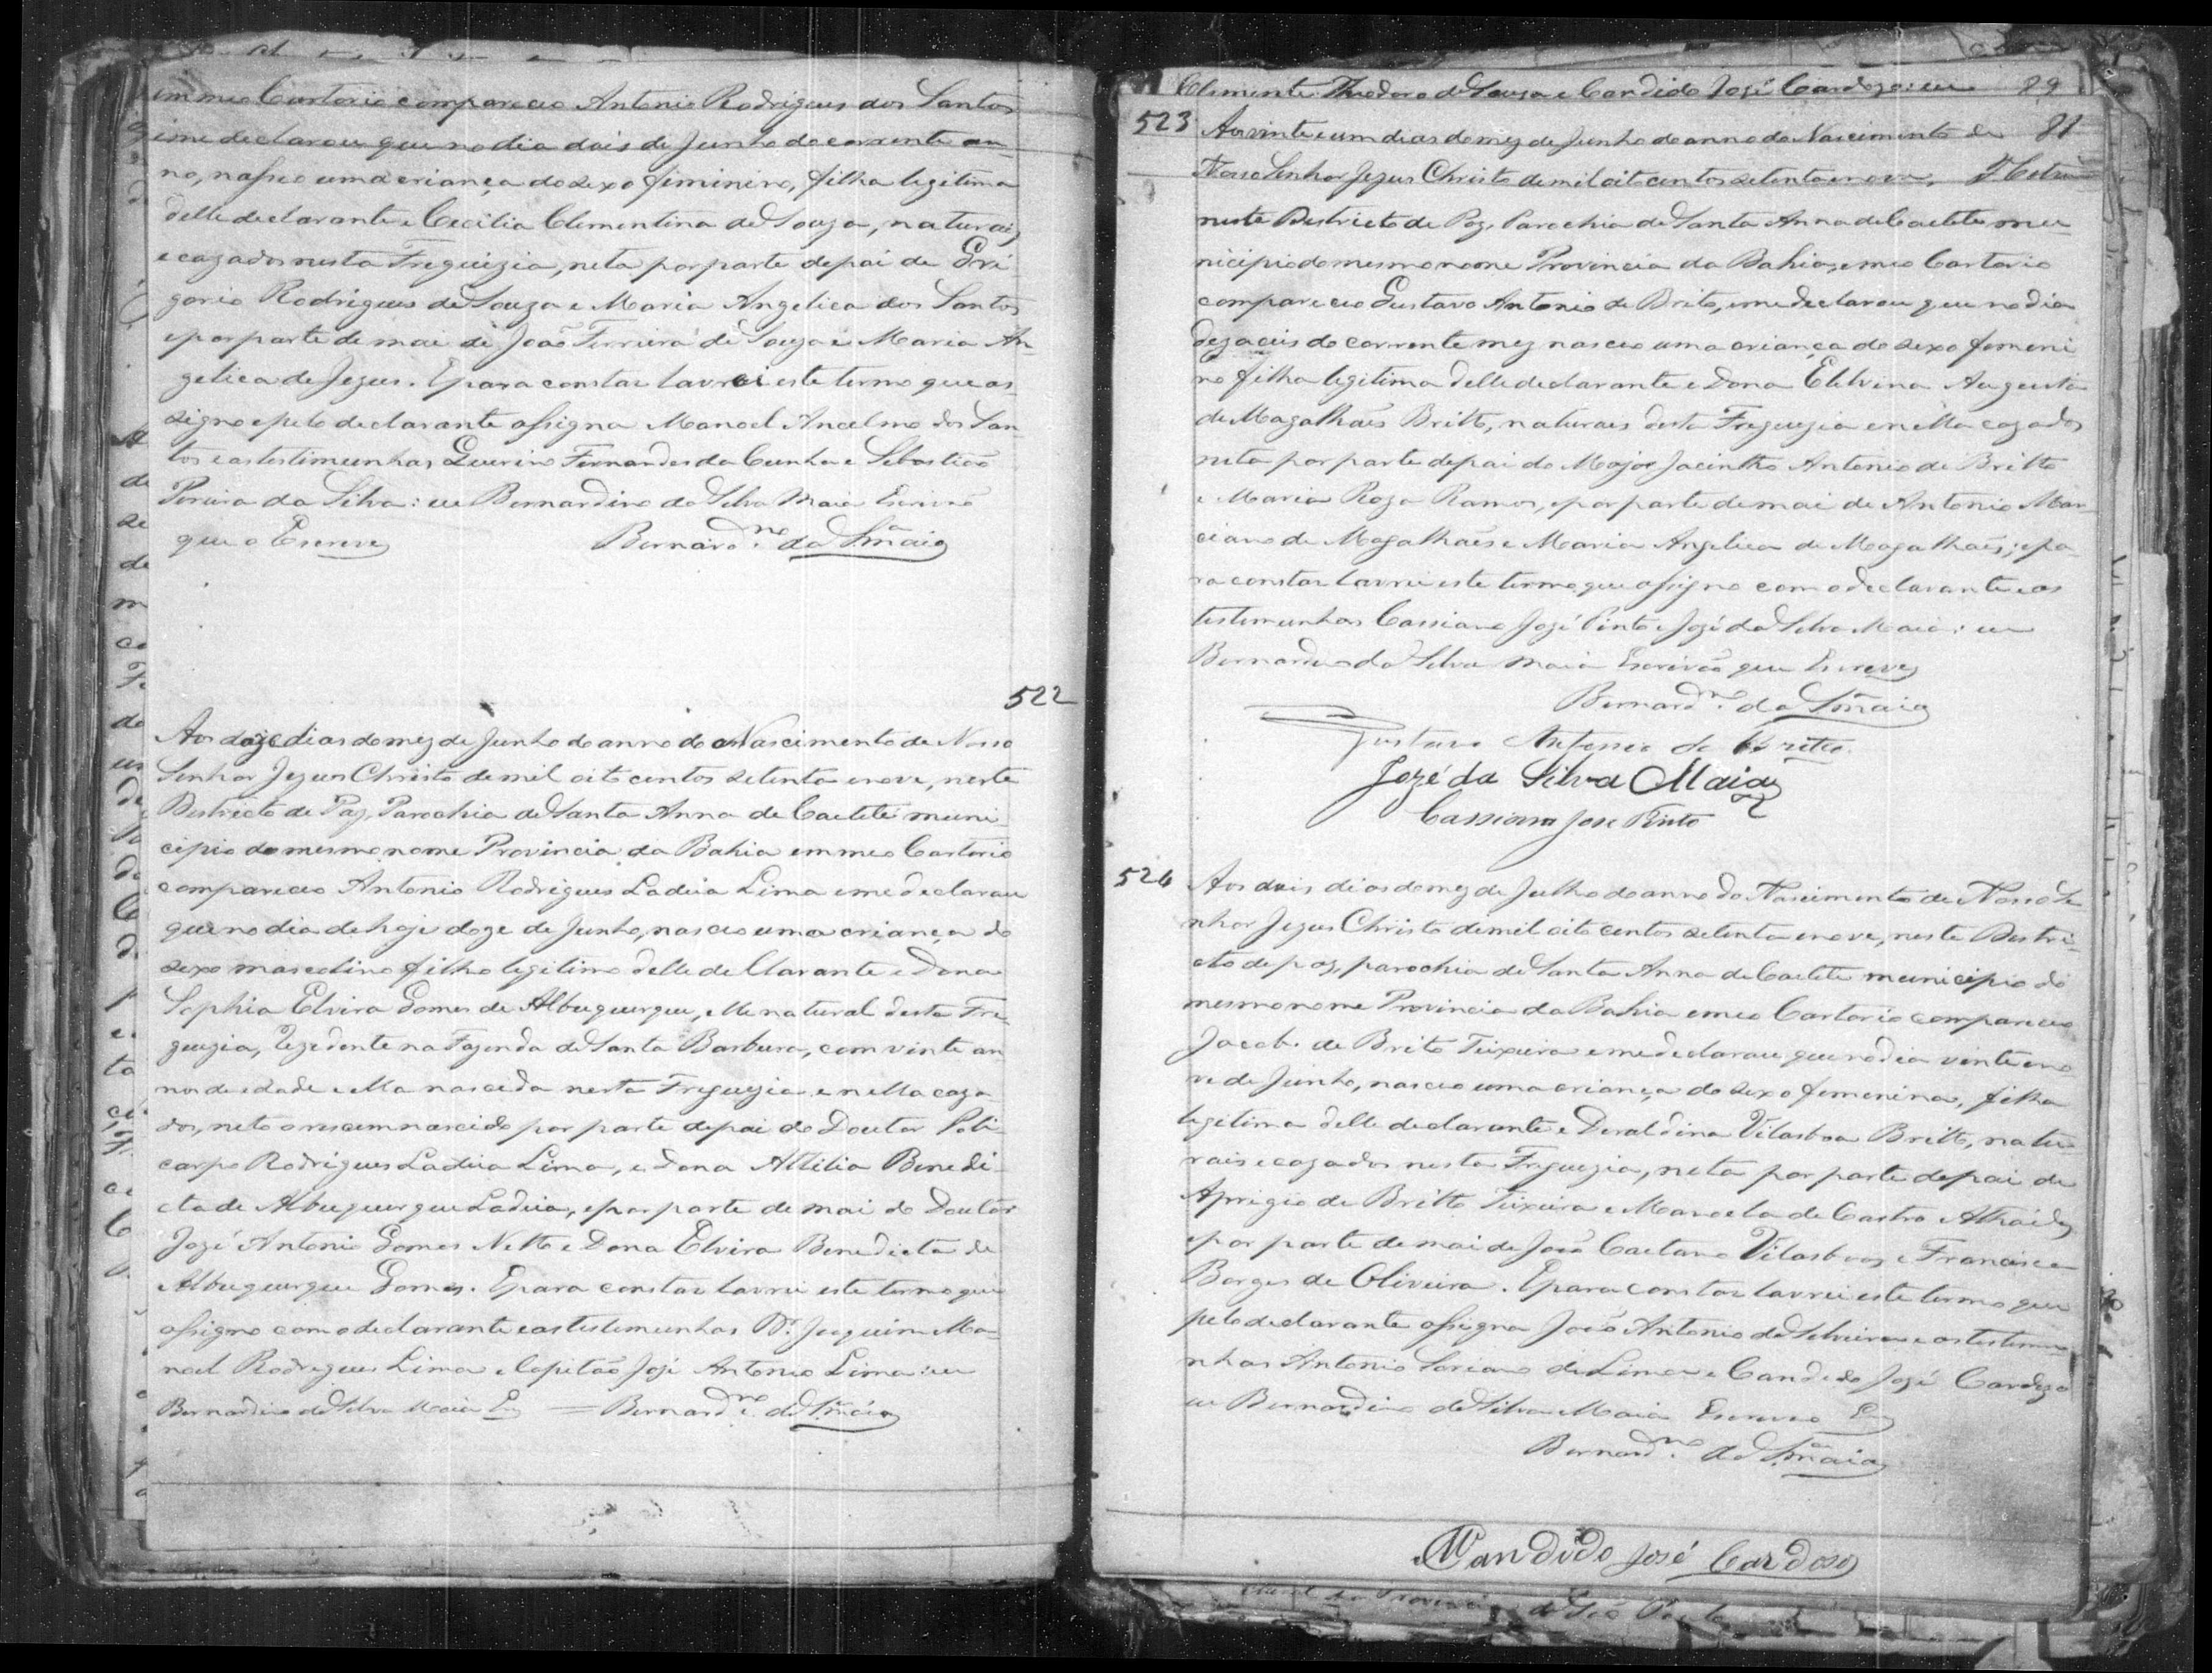 em meo Cartorio compareceo Antonio Rodrigues dos Santos
e me declarou que no dia dois de Junho do corrente an-
no, nasceo uma criança do sexo feminino, filha legitima
delle declarante e Cecilia Clementina de Souza, naturaes
e cazados nesta Freguizia, neta por parte de pai de Gri
gorio Rodrigues de Souza e Maria Angelica dos Santos
e por parte de mai de João Ferreira de Souza e Maria An-
gelica de Jezus. E para constar lavrei este termo que as-
signo e pelo declarante assigna Manoel Ancelmo dos San-
tos e as testimunhas Querino Fernandes da Cunha e Sebastião
Pereira da Silva: eu Bernardino da Silva Maia Escrivão
que o Escrevy Bernard.no da S.a Maia
522
Aos doze dias do mez de Junho do anno do Nascimento de Nosso
Senhor Jezus Christo de mil oito centos setenta e nove, neste
Destricto de Paz, Parochia de Santa Anna de Caeteté muni-
cipio do mesmo nome Provincia da Bahia em meo Cartorio
compareceo Antonio Rodrigues Ladeia Lima e me declarou
que no dia de hoje doze de Junho, nasceo uma criança do
sexo mascolino filho legitimo delle declarante e Dona
Sophia Elvira Gomes de Albuquerque, elle natural desta Fre-
guezia, rezidente na Fazenda de Santa Barbara, com vinte an
nos de edade e ella nascida nesta Freguezia e nella caza-
dos, neto o rescemnascido por parte de pai do Doutor Poli-
carpo Rodrigues Ladeia Lima, e Dona Attilia Benedi-
cta de Albuquerque Ladeia, e por parte de mai do Doutor
José Antonio Gomes Netto e Dona Elvira Benedicta de
Albuquerque Gomes. E para constar lavrei este termo que
assigno com o declarante e as testemunhas Dr. Juaquim Ma-
noel Rodrigues Lima e Capitão José Antonio Lima: eu
Bernardino da Silva Maia Bernard.no da S.a Maia
Clemente Theodoro de Souza e Candido José Cardozo: eu 89
523 Aos vinte e um dias do mez de Junho do anno do Nascimento de 81
Nosso Senhor Jezus Christo de mil oito centos setenta e nove,
neste Destricto de Paz, Parochia de Santa Anna de Caeteté mu-
nicipio do mesmo nome Provincia da Bahia, em meo Cartorio
compareceo Gustavo Antonio de Brito, e me declarou que no dia
dezaceis do corrente mez nasceo uma criança do sexo femeni
no filha legitima delle declarante e Dona Etelvina Augusta
de Magalhães Britto, naturaes desta Freguezia e nella cazados
neta por parte de pai do Major Jacintho Antonio de Britto
e Maria Roza Ramos, e por parte de mai de Antonio Mar-
ciano de Magalhães e Maria Angelica de Magalhães; e pa-
ra constar lavrei este termo que assigno com o declarante e as
testemunhas Cassiano José Pinto e José da Silva Maia: eu
Bernardino da Silva Maia Escrivão que Escrevy
Bernard.no da S.a Maia
Gustavo Antonio de Britto
Jozé da Silva Maia
Cassiano Jose Pinto
524 Aos dois dias do mez de Julho do anno do Nascimento de Nosso Se
nhor Jezus Christo de mil oito centos setenta e nove, neste Destri-
cto de paz, parochia de Santa Anna de Caeteté municipio do
mesmo nome Provincia da Bahia em meo Cartorio compareceo
Jacob de Brito Teixeira e me declarou, que no dia vinte e no
ve de Junho, nasceo uma criança do sexo femenina, filha
legitima delle declarante e Deraldina Vilasboa Britto, natu-
raes e cazados nesta Freguezia, neta por parte de pai de
Aprigio de Britto Teixeira e Manoela de Castro Athaides
e por parte de mai de João Caetano Vilasboas e Francisca
Borges de Oliveira. E para constar lavrei este termo que
pelo declarante assigna João Antonio da Silveira e as testemu
nhas Antonio Soriano de Lima e Candido José Cardozo
eu Bernardino da Silva Maia Escrivão
Bernard.no da S.a Maia
Candido José Cardoso